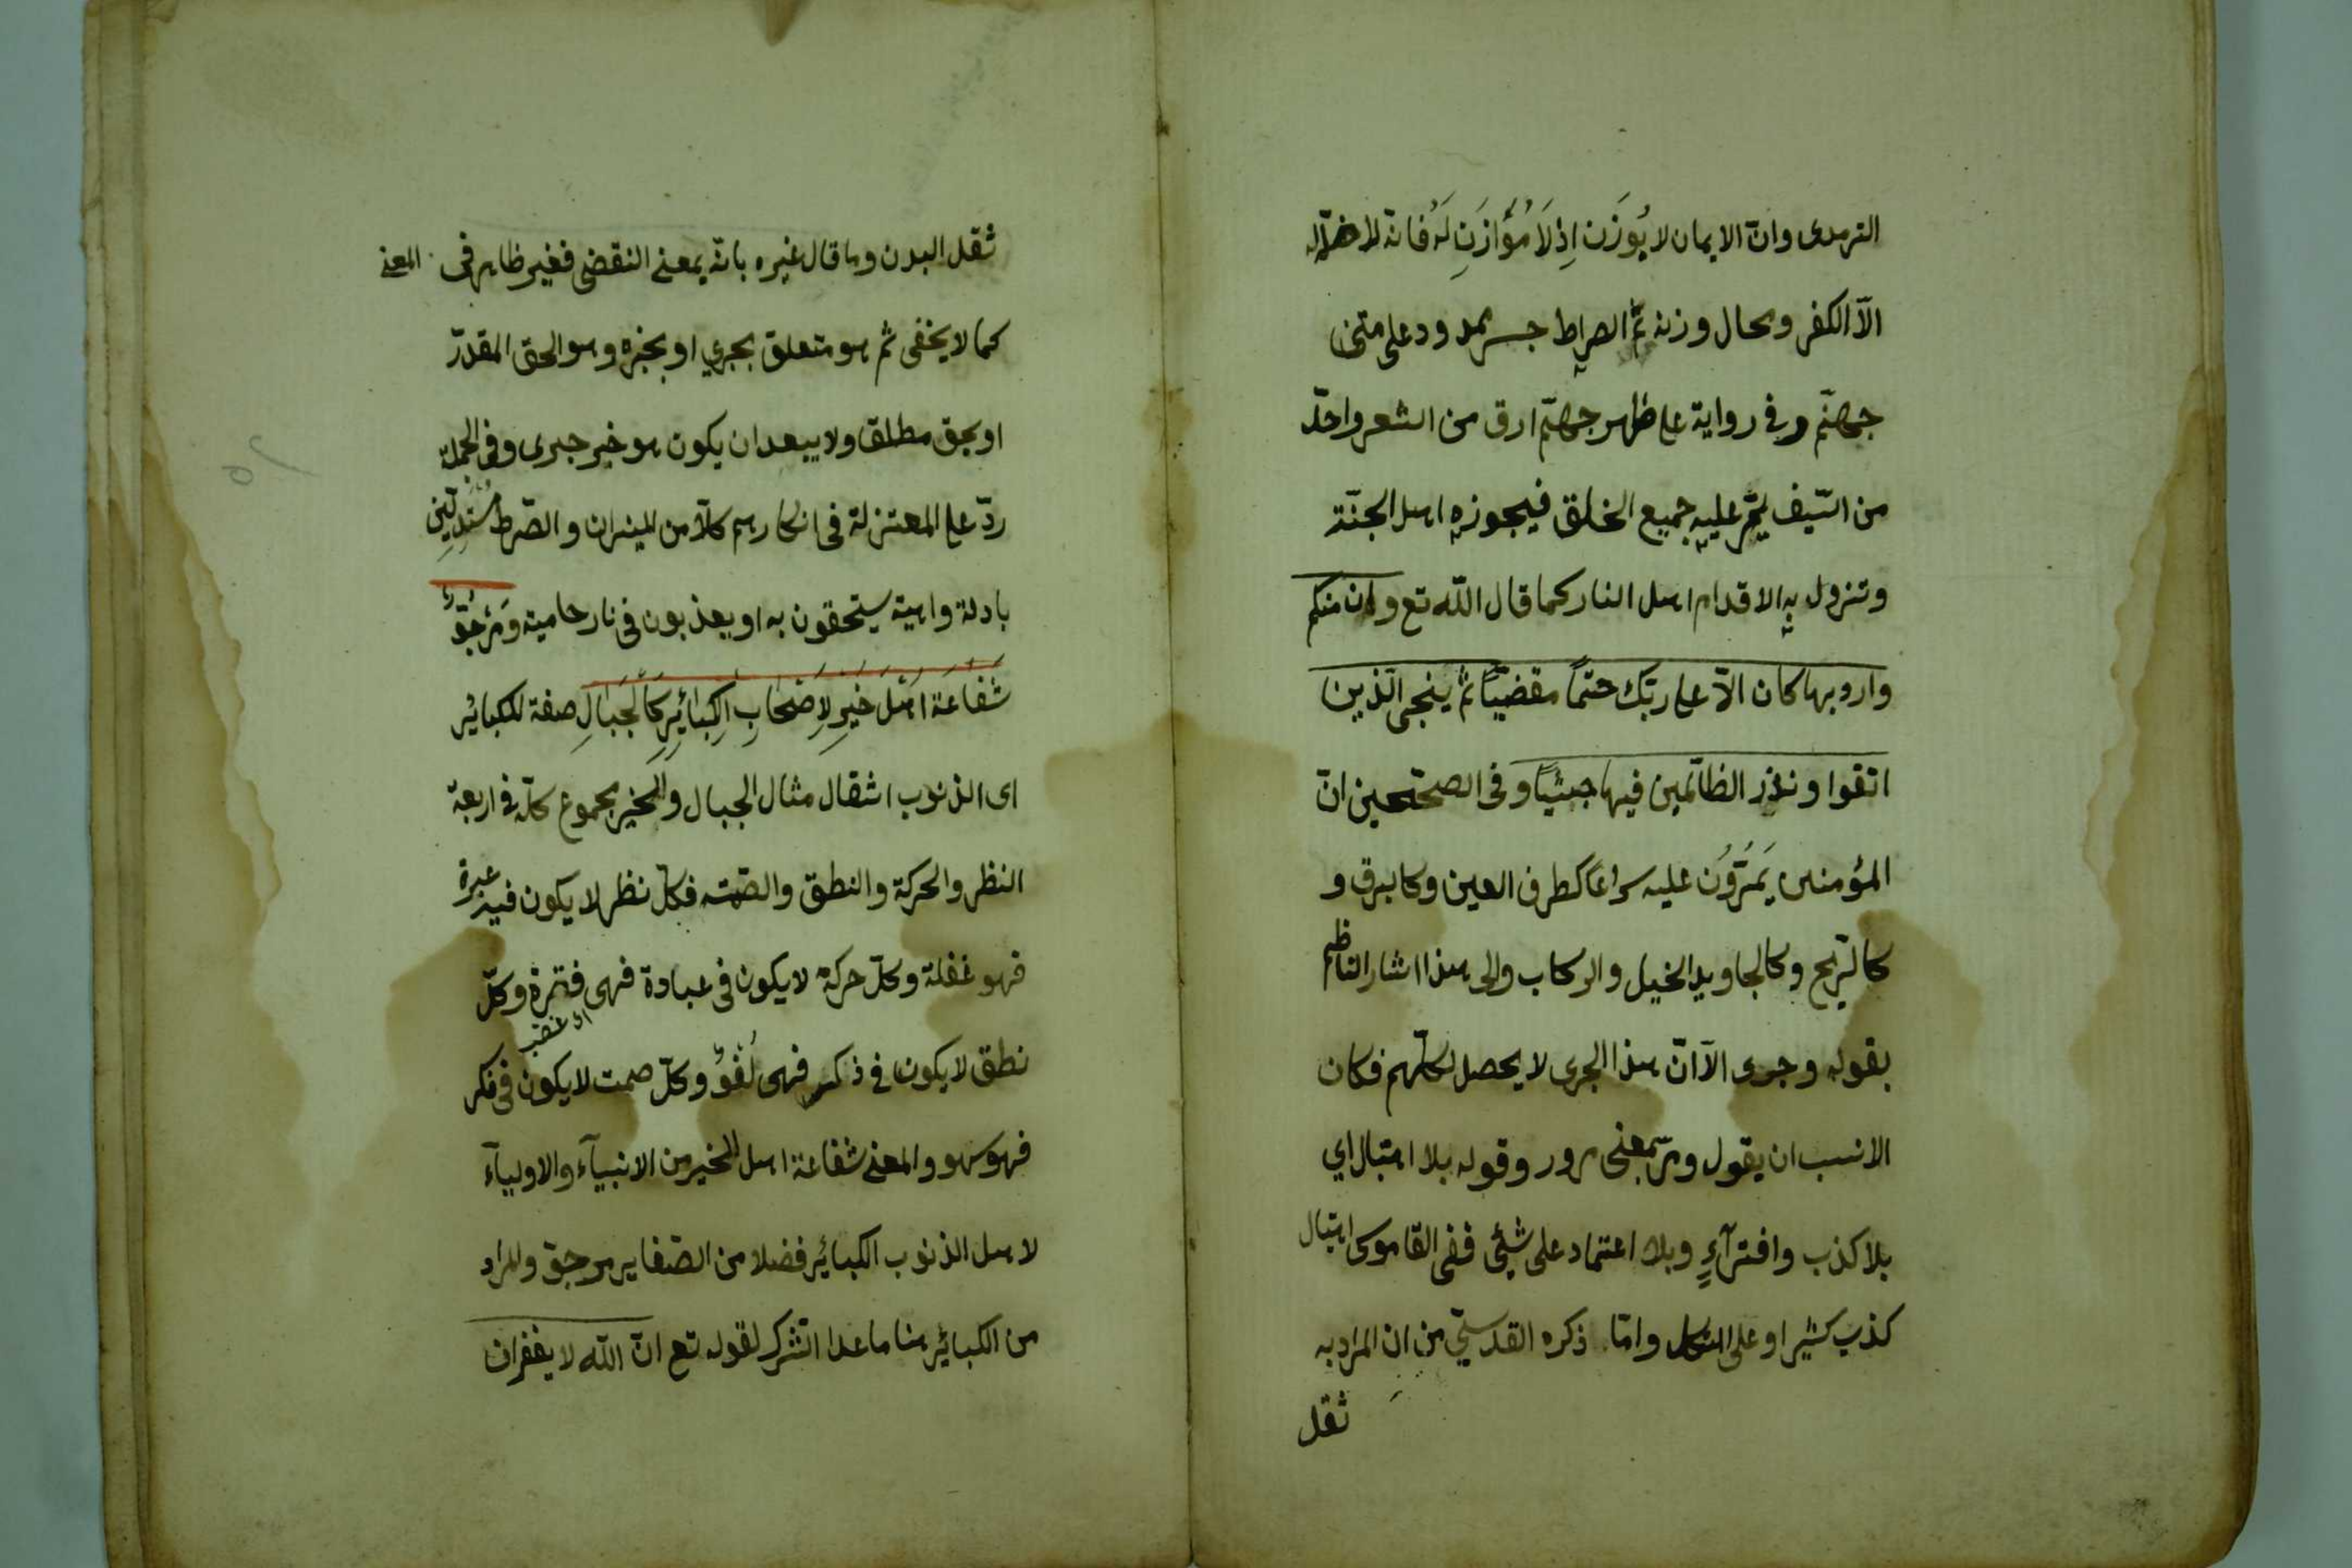 الترمدى وانّ الايمان لا يُوزَن اِذ لَا مُؤَازَنِ لَهُ فانّه لا ضدّ له
الّا الكفر ومحال وزنه ثمّ الصراط جسر ممدود على متن
جهنّم وفى رواية على ظهر جهنّم ارق من الشعر واحدّ
من السّيف يمّر عليه جميع الخلق فيجوزه اهل الجنّة
وتزول به الاقدام اهل النار كما قال اللّه تع وان منكم
واردبها كان الّا على ربّك حتمًا مقضيّا ثم ينجى الّذين
اتقوا ونذر الظالمين فيها جثيّا وفى الصحّحين انّ
المؤمنين يَمُرّوُن عليه سراعًا كطرف العين وكا لبرق و
كا لرّيح وكالجاويد الخيل والركاب والى هذا اشار الناظم
بقوله وجرى الّا انّ هذا الجرى لا يحصل لكلّهم فكان
الانسب ان يقول ومرّ بمعنى مرور وقوله بلا اهتبال اي
بلا كذب وافترآءٍ وبلا اعتماد على شئى ففى القاموس اهتبال
كذب كثيرا وعلى الثكل وامّا ذكره القدسّى من ان المراد به
ثقل
ثقل البدن وما قال غيره بانّه بمعنى النقضى فغير ظاهر فى المعنى
كما لا يخفى ثم هو متعلق بجرى او بخبره وهو الحق المقدّر
او بحق مطلق ولا يبعد ان يكون هو خبر جرى وفى الجملة
ردّ على المعتزلة فى انكارهم كلاّ من الميزان والصّرط مُستَدِلّينِ
بادلة واهية يستحقون به او يعذبون فى نار حامية وَمَرْجُوٌّ
شَفَاعَة اهْلِ خَيْرٍ لِاَصْحَابِ الكَبَائِرِ كَالْجَبَالِ صفة للكبائر
اى الذنوب اثقال مثال الجبال والخير مجموع كلّه فى اربعة
النظر والحركة والنطق والصّمت فكلّ نظر لا يكون فيه عبرة
فهو غفلة وكلّ حركة لا يكون فى عبادة فهى فترة وكلّ
نطق لا يكون فى ذكر فهى لُغْوٌ وكلّ صمت لا يكون فى فكر
فهو سهو والمعنى شفاعة اهل الخير من الانبيآء والاوليآء
لاهل الذنوب الكبائر فضلا من الصّغاير مرجوّ والمراد
من الكبائر هنا ما عدا الشّرك لقوله تع انّ اللّه لا يغفر ان